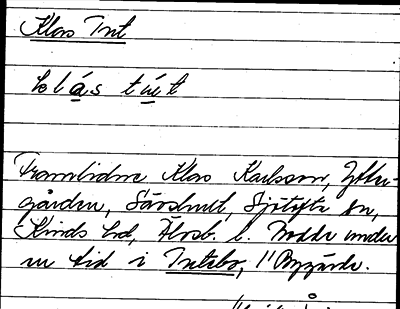 Klas Tut
klás tút
Framlidne Klas Karlsson, Ytter-
gården, Sävshult, Sjötofta sn,
Kinds hd, Älvsb. l. bodde under
en tid i Tutebo, 11 Byggårde.